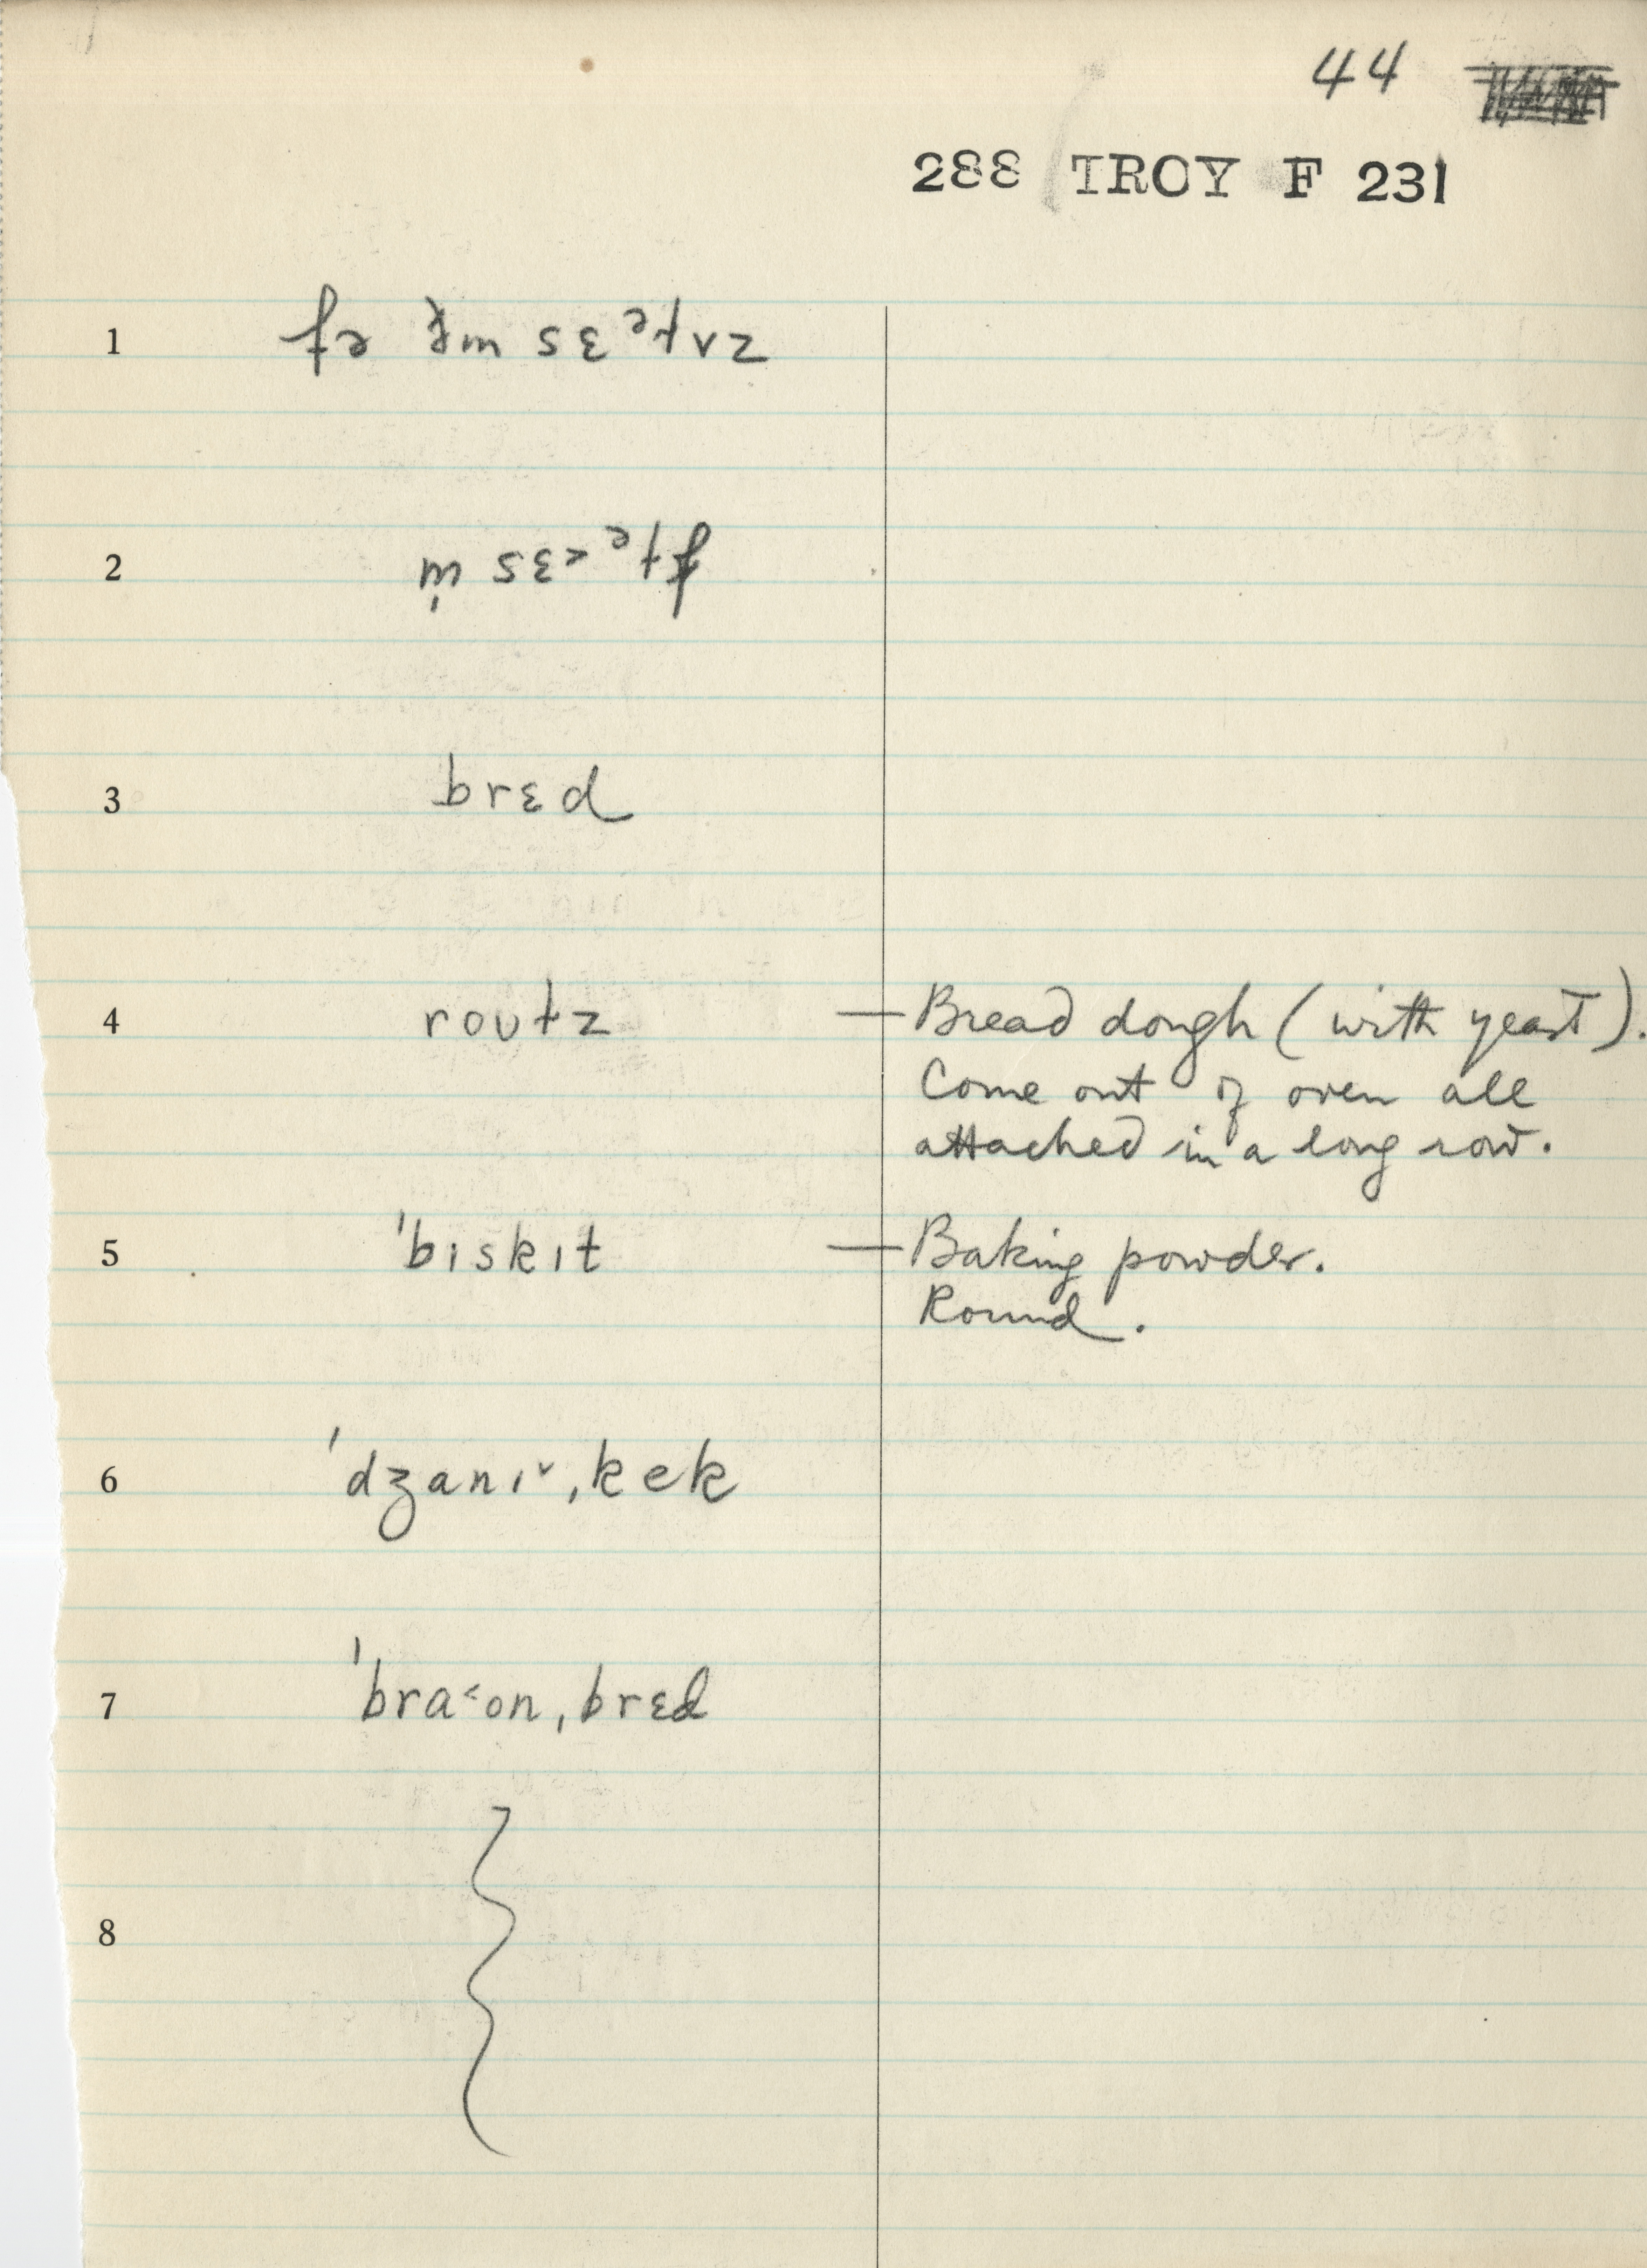 44
288 TROY F 231
1
2
3 brɛd
4 roʊɫz — Bread dough (with yeast).
Come out of oven all
attached in a long row.
5 ˈbɪskɪt — Baking powder.
Round.
6 ˈdʒanɪ˅ˌkek
7 ˈbra˂onˌbrɛd
8